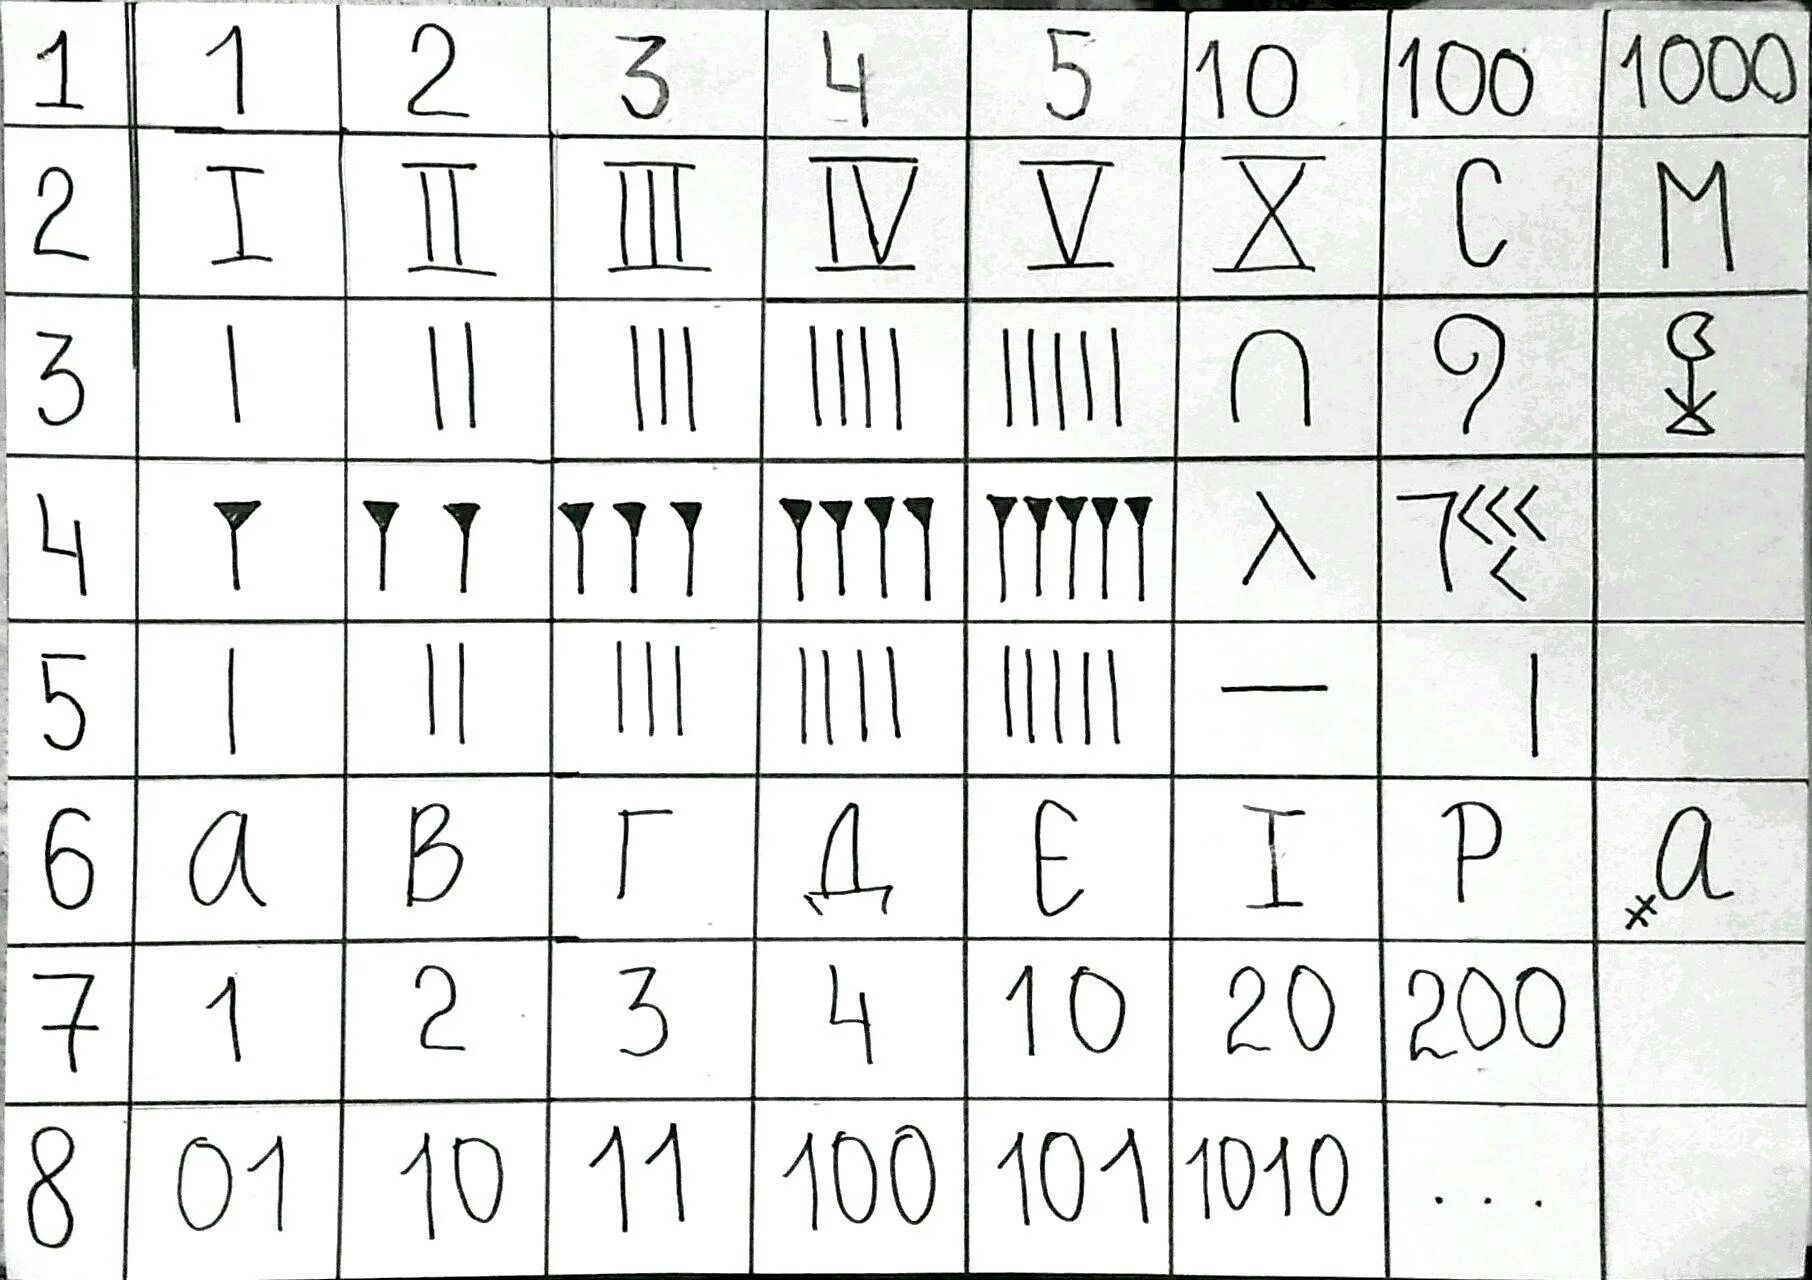 1 1 2 3 4 5 10 100 1000
2 I II III IV V X C M
3 | || ||| |||| ||||| ∩
4
5 | || ||| |||| ||||| — |
6 А В Г Д Е I Р А
7 1 2 3 4 10 20 200
8 01 10 11 100 101 1010 ...